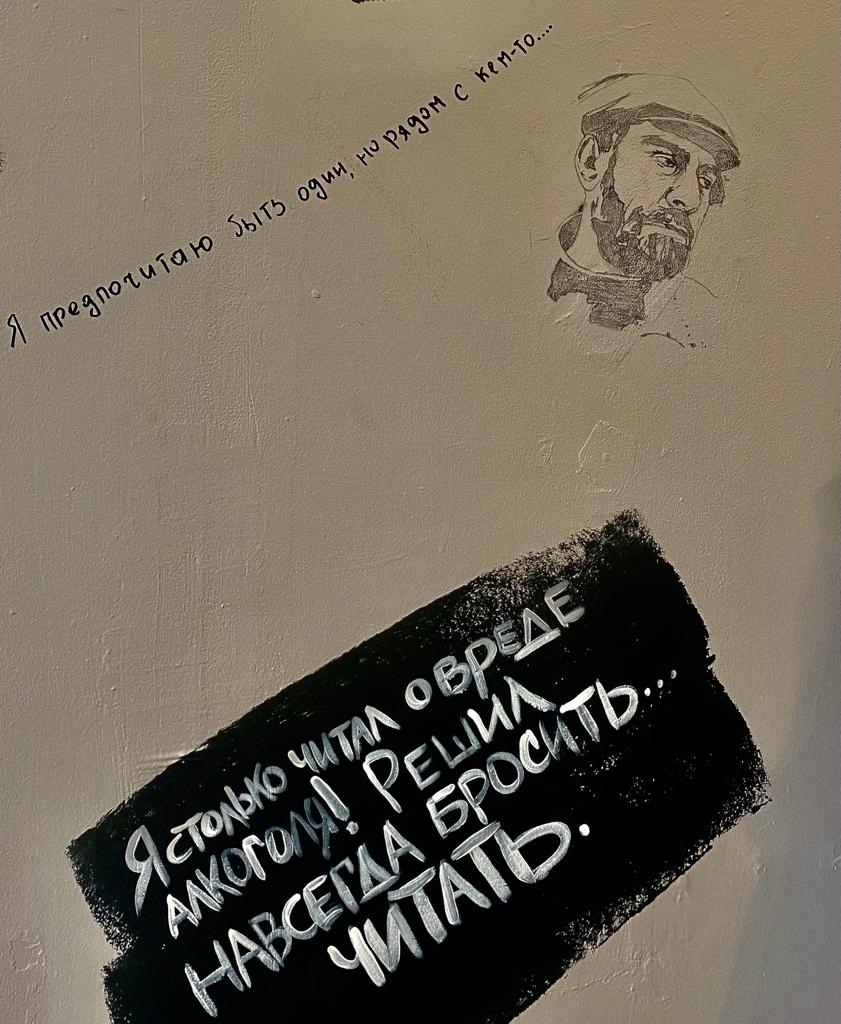 Я предпочитаю быть один, но рядом с кем-то....
Я СТОЛЬКО ЧИТАЛ О ВРЕДЕ
АЛКОГОЛЯ! РЕШИЛ
НАВСЕГДА БРОСИТЬ...
ЧИТАТЬ.